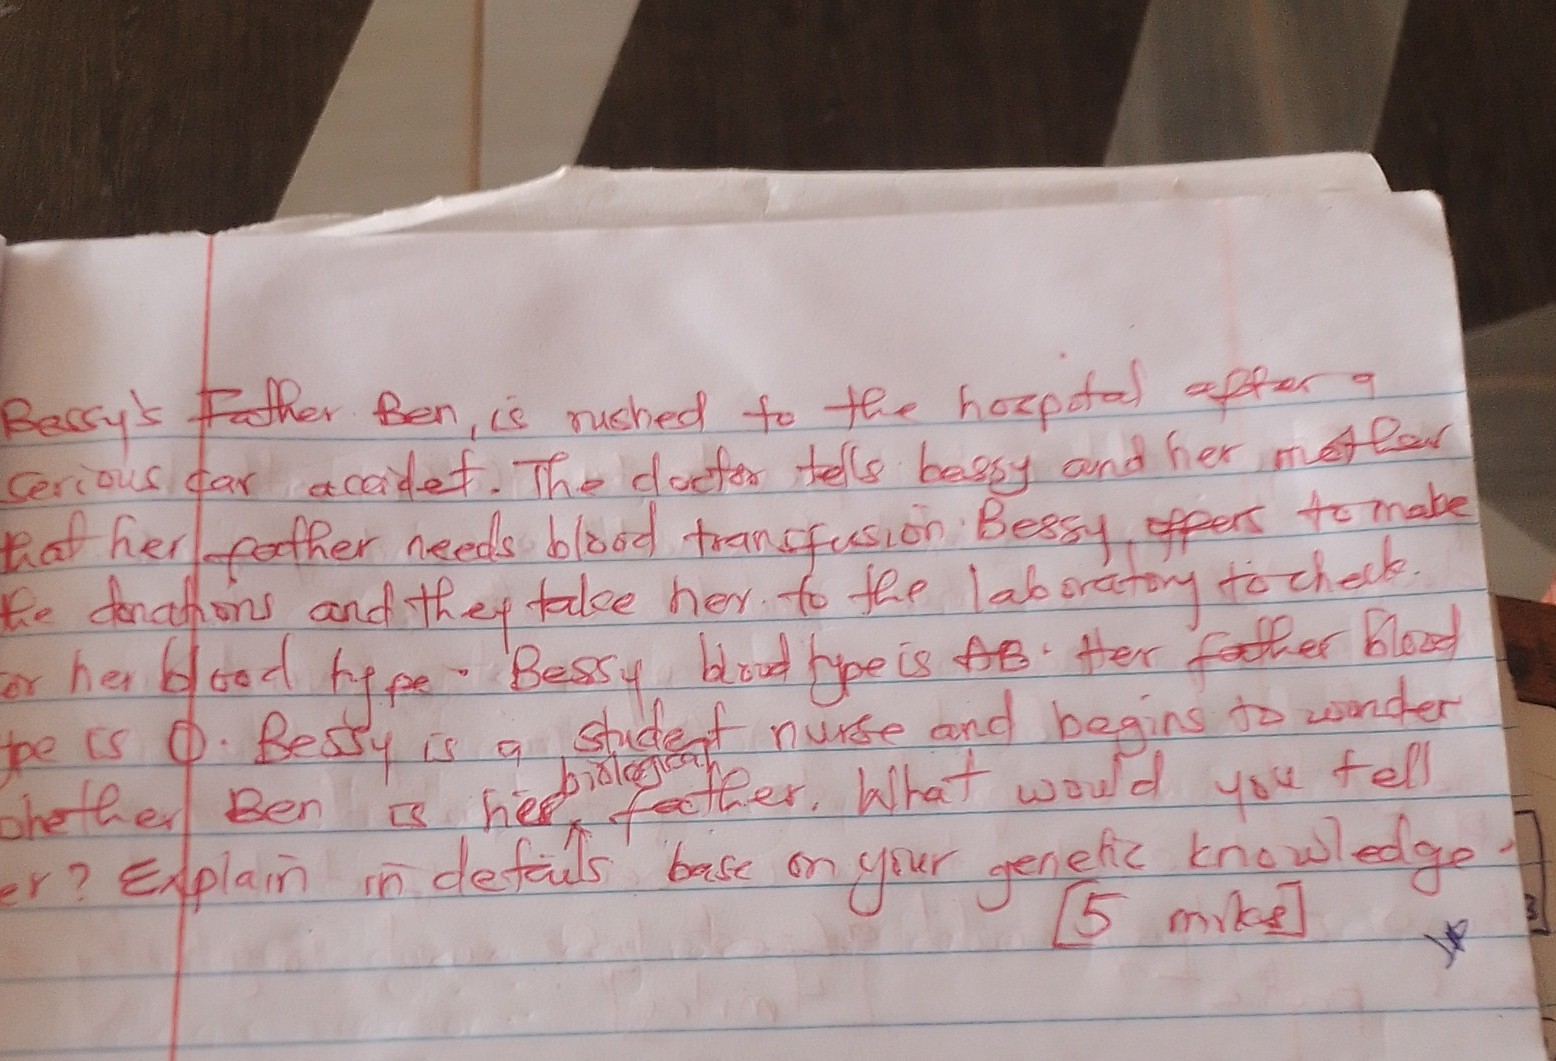 Bessy's Father Ben, is rushed to the hospital after a
serious car accidet. The doctor tells bessy and her mother
that her father needs blood transfusion. Bessy, offers to make
the donations and they take her to the laboratory to check
or her blood type. Bessy blood type is AB. Her father blood
pe is O. Bessy is a student nurse and begins to wonder
whether Ben is her biological father. What would you tell
er? Explain in details base on your genetic knowledge.
[5 mrks]